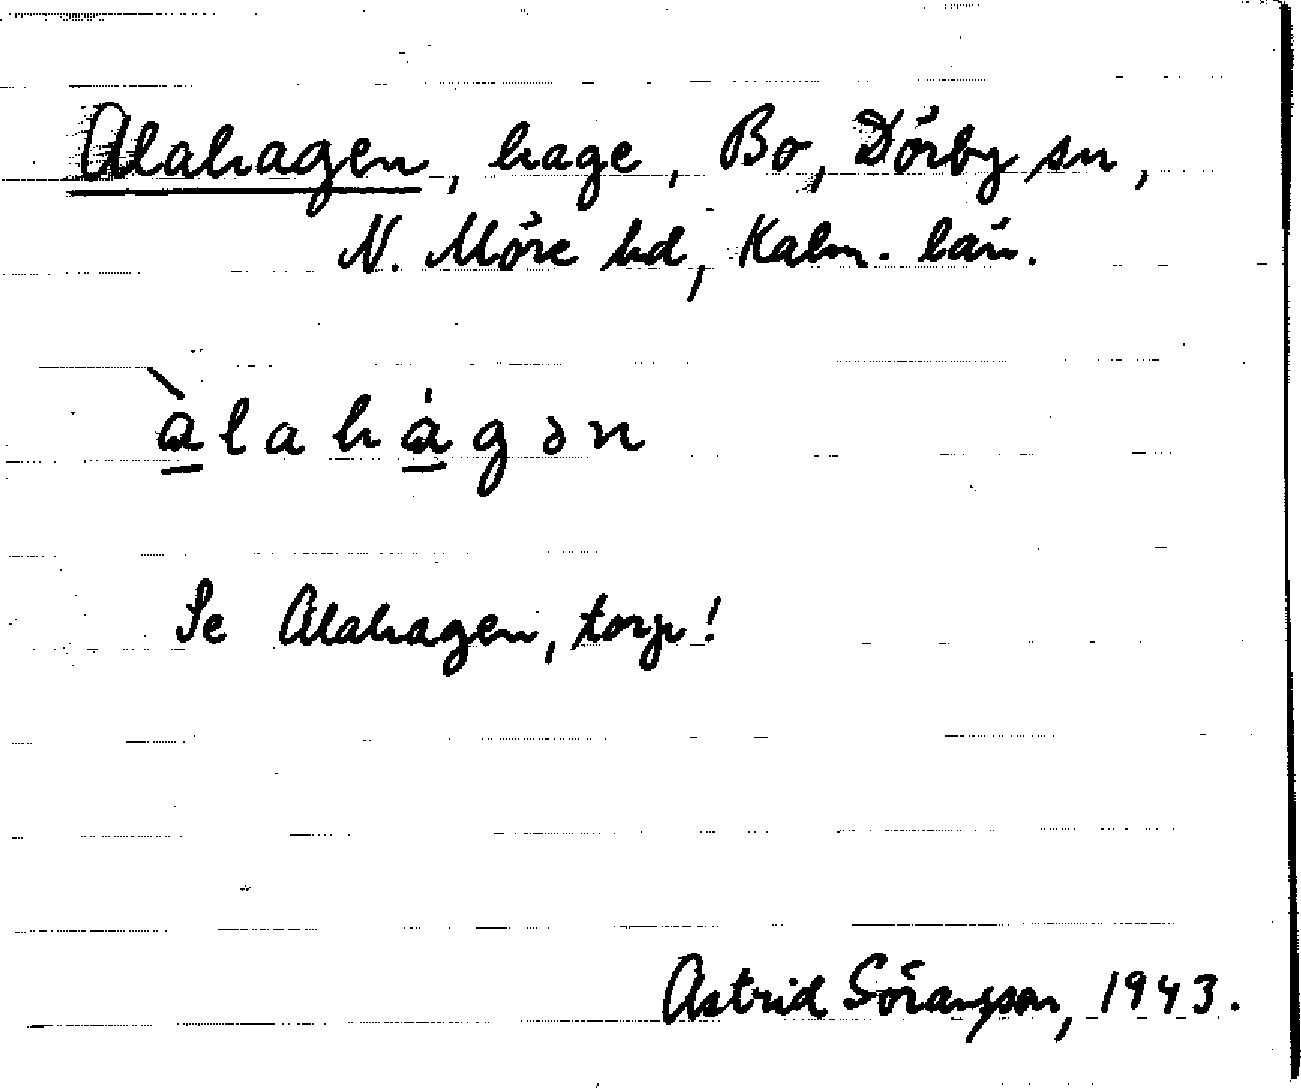 Alahagen, hage, Bo, Dörby sn,
N. Möre hd, Kalm. län.
àlahágən
Se Alahagen, torp!
Astrid Göransson, 1943.